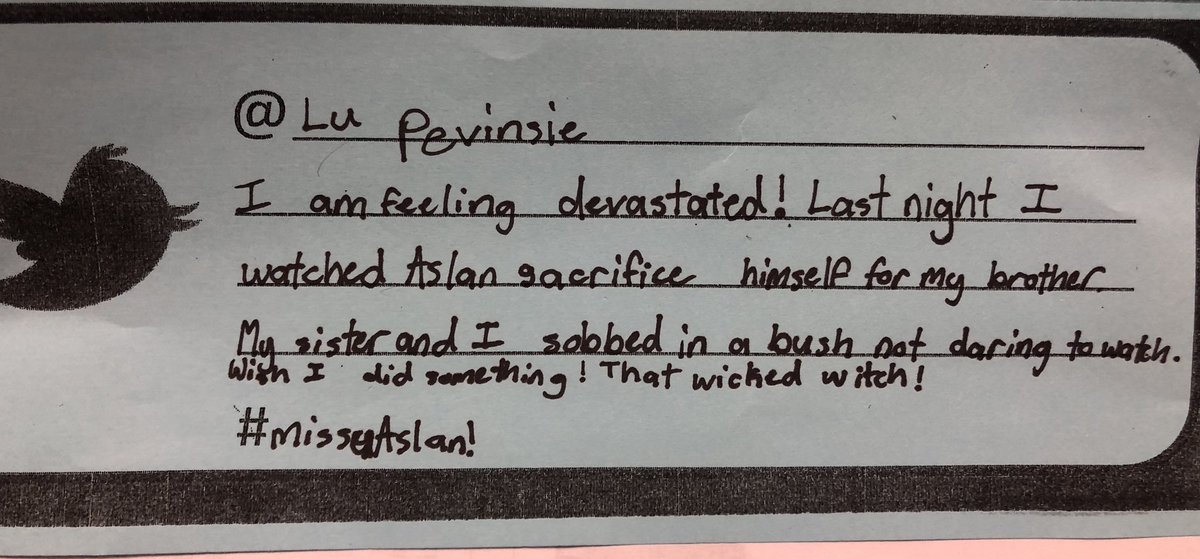 @Lu Pevinsie
I am feeling devastated! Last night I
watched Aslan sacrifice himself for my brother.
My sister and I sobbed in a bush not daring to watch.
Wish I did something! That wicked witch!
#missyaAslan!